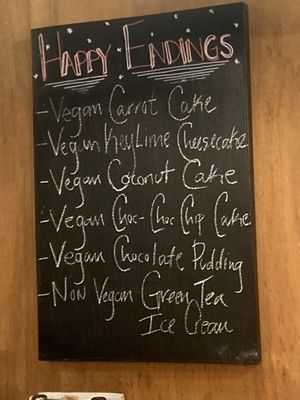 Happy Endings
- Vegan Carrot Cake
- Vegan Key Lime Cheesecake
- Vegan Coconut Cake
- Vegan Choc-Choc Chip Cake
- Vegan Chocolate Pudding
- Non Vegan Green Tea
Ice Cream